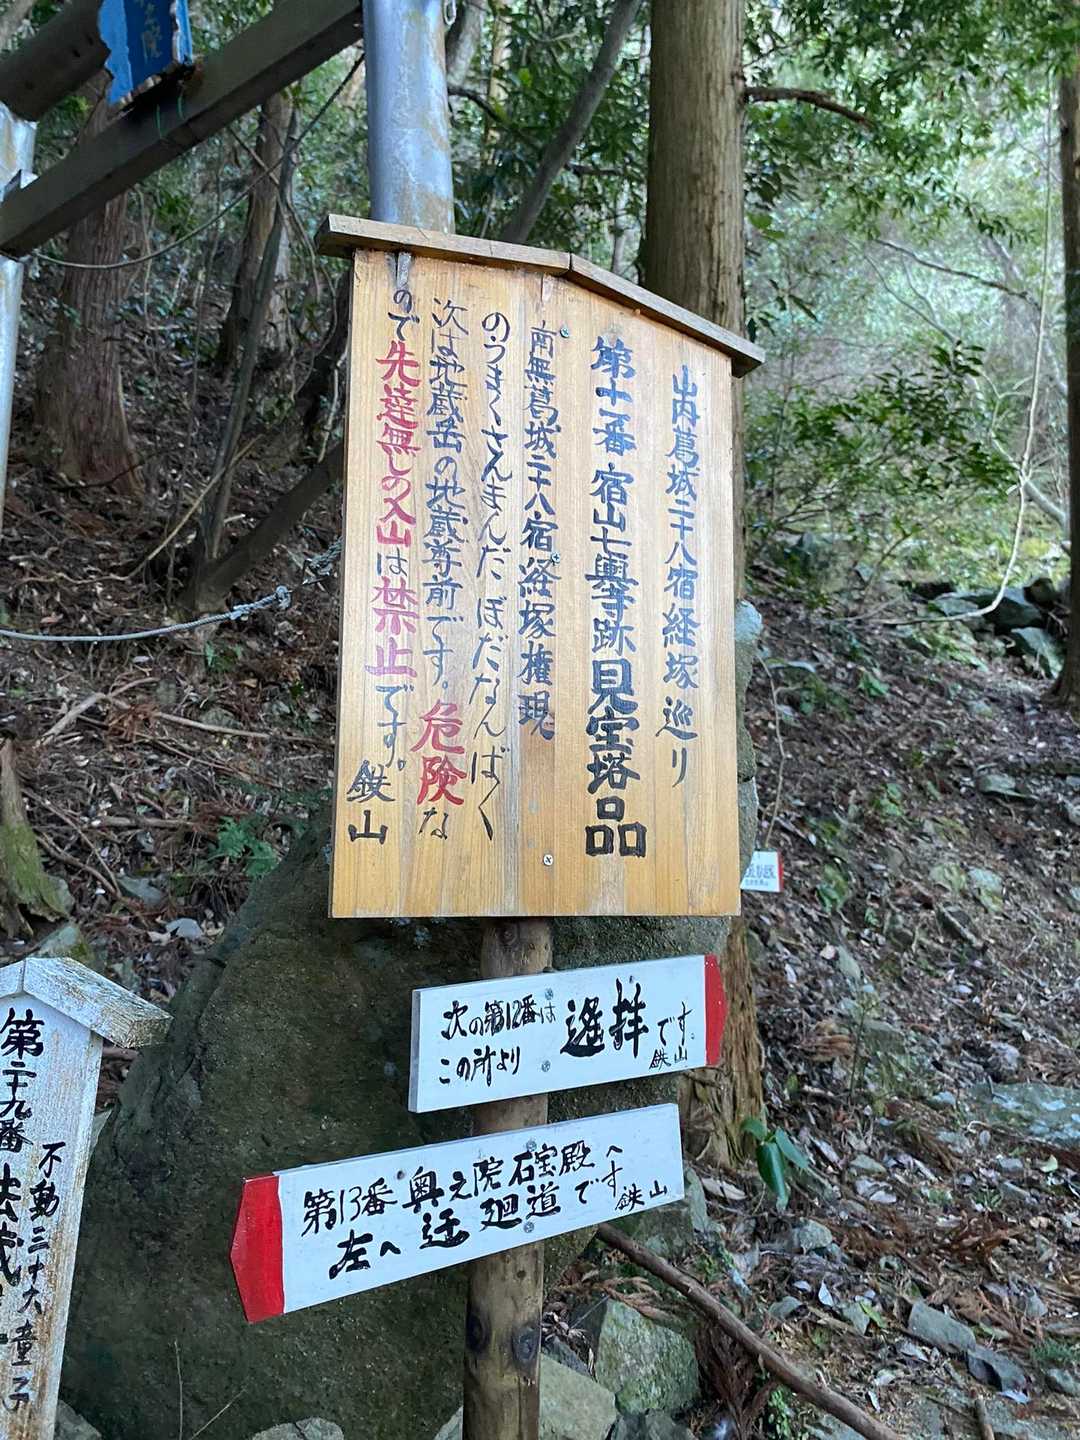 山内葛城二十八宿経塚巡り
第十一番 宿山七輿寺跡 見宝塔品
南無葛城二十八宿経塚権現
のうまくさんまんだ ぼだなんばく
次は地蔵岳の地蔵尊前です。危険な
ので先達無しの入山は禁止です。
鉄山
次の第12番は
この所より
遙拝です。
鉄山
第13番 奥之院 石宝殿へ
左へ 迂廻道です
鉄山
第二十九番
不動三十六童子